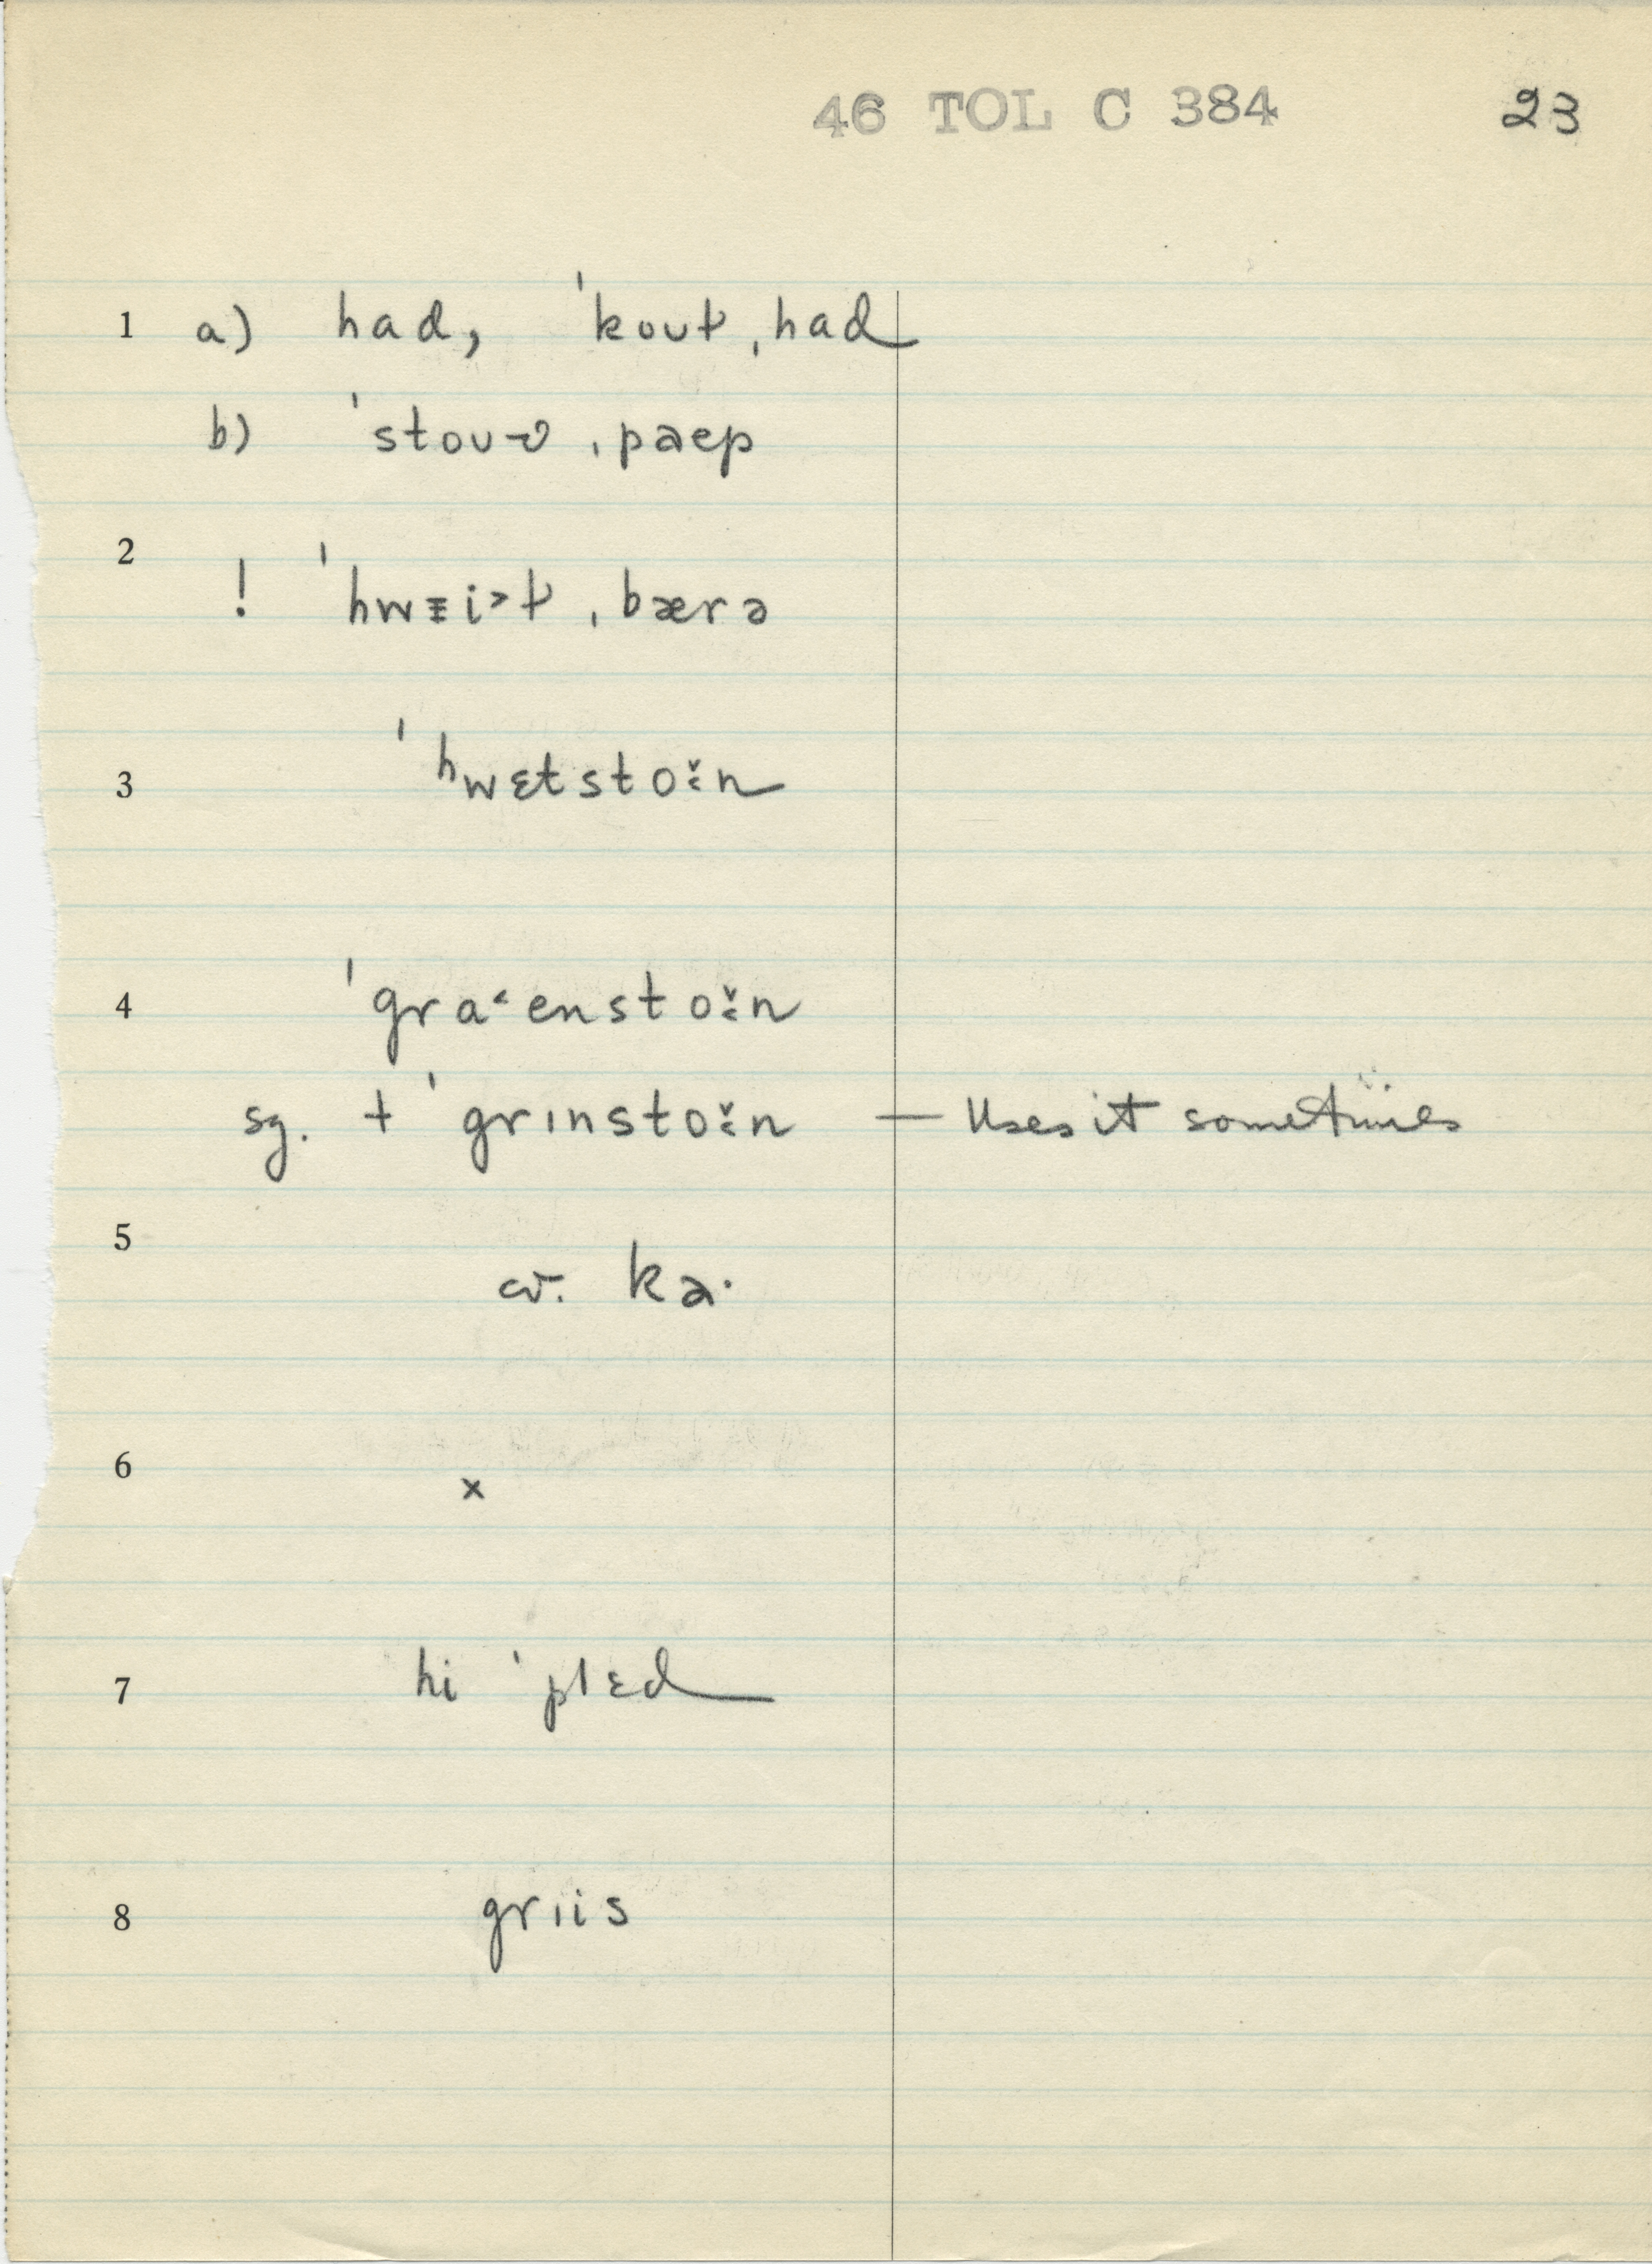 46 TOL C 384 23
1 a) had, ˈkoʊt ˌhad
b) ˈstoʊv ˌpaep
2
! ˈhwɛi˃t ˌbærə
3 ˈhwɛtsto:n
4 ˈgra˂ensto:n
sg. + ˈgrɪnsto:n — Uses it sometimes
5
cv. ka·
6 x
7 hi ˈplɛd
8 grɪis